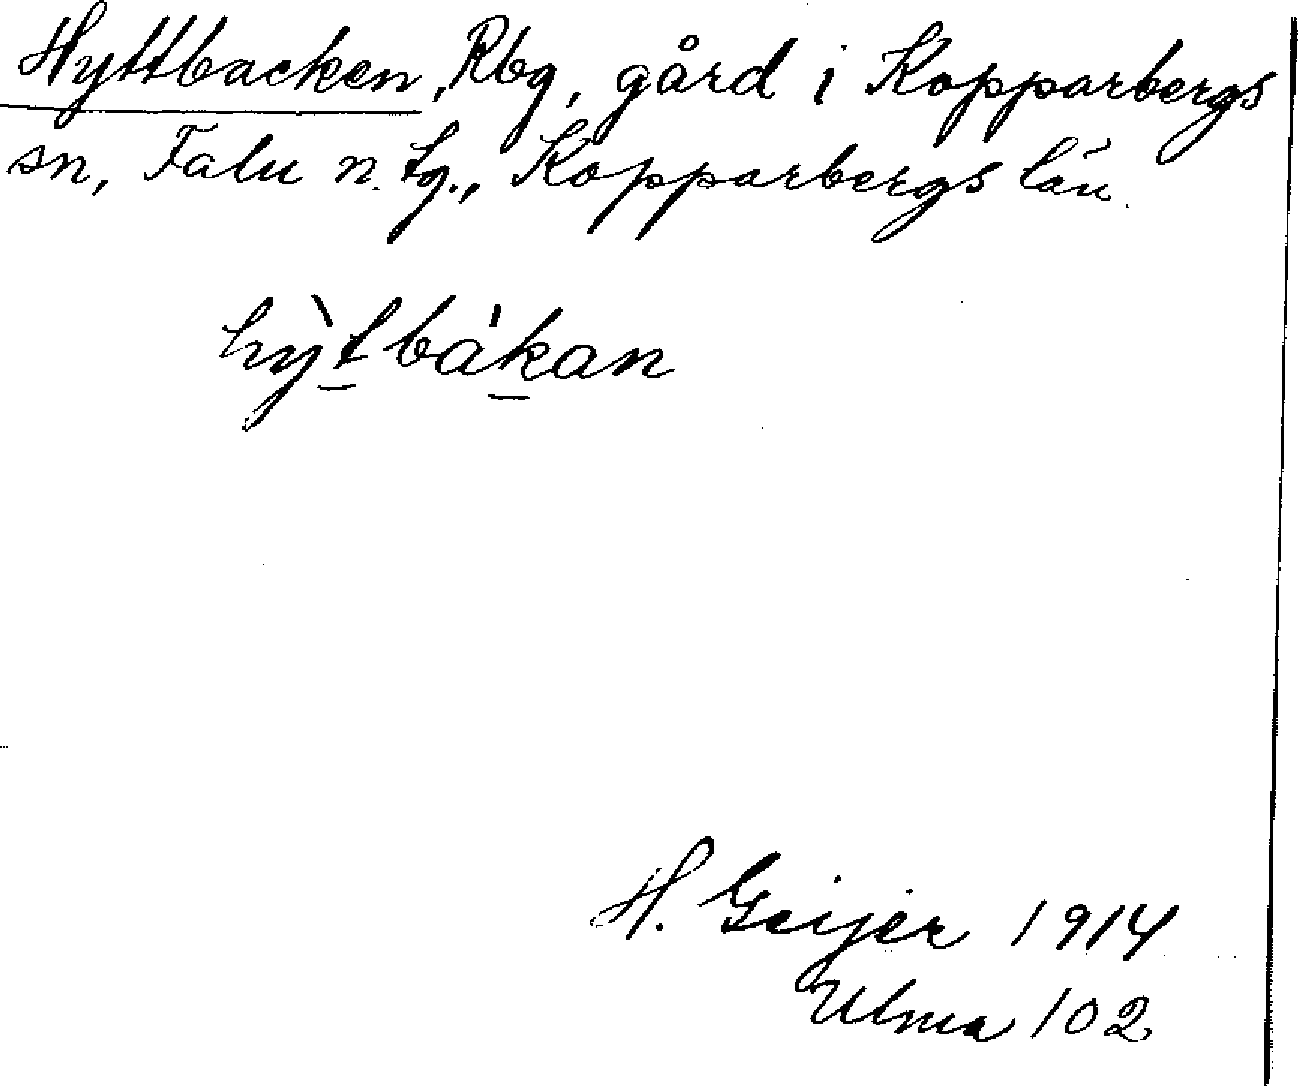 Hyttbacken, Rbg, gård i Kopparbergs
sn, Falu n. tg., Kopparbergs län.
hỳt̲bák̲an
H. Geijer 1914
Ulma 102